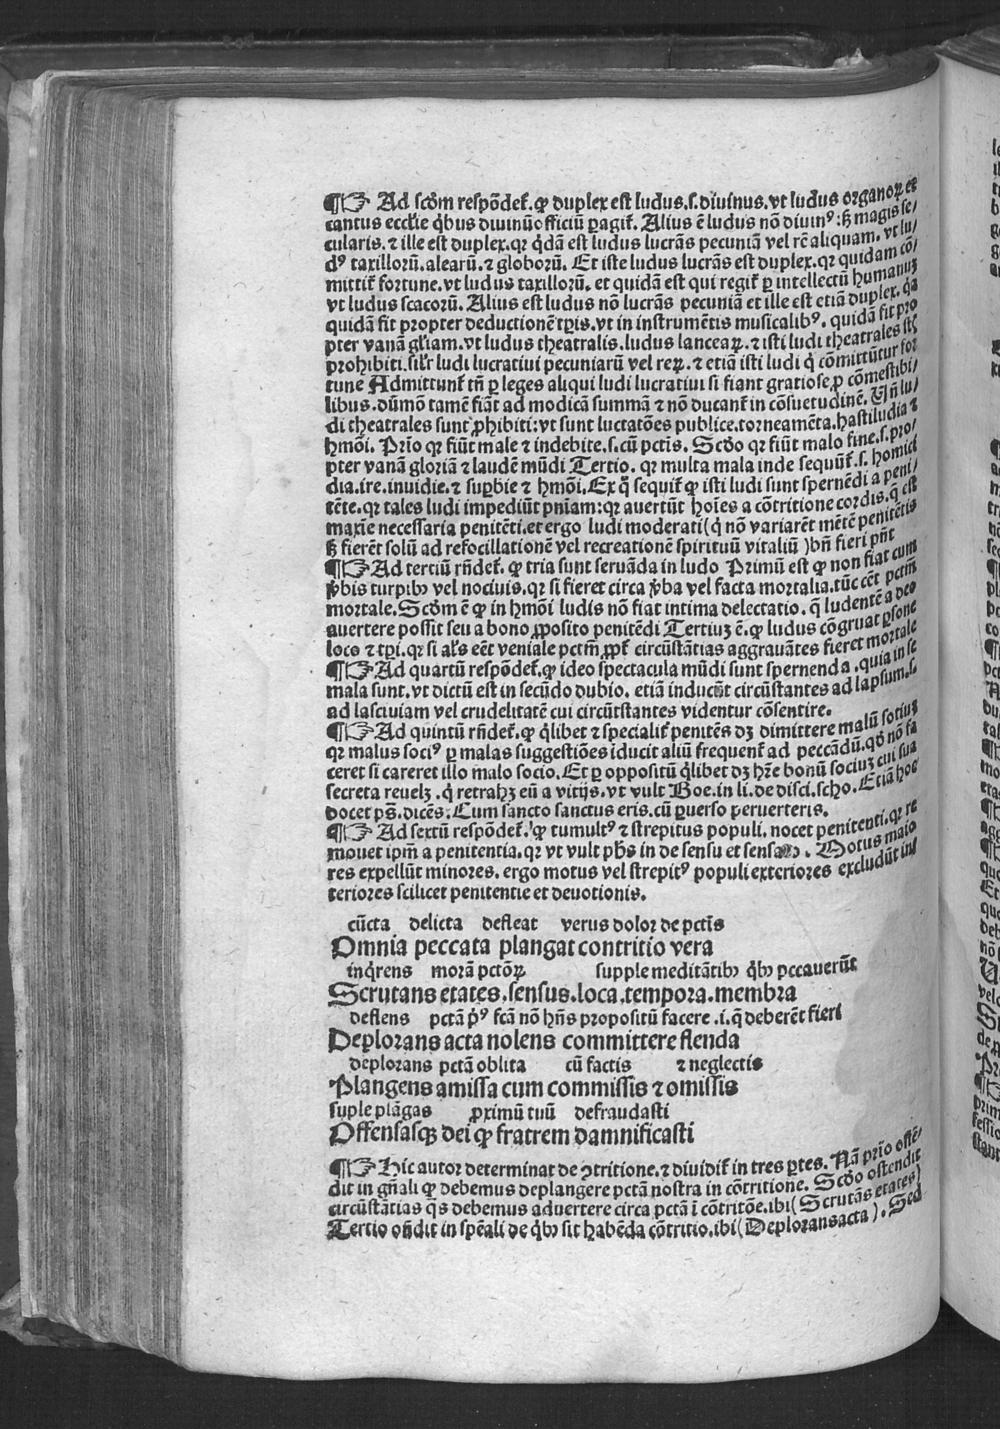 ¶☞ Ad scḋm respōdet᷑. ꝙ duplex est ludus.s.diuinus.vt ludus organoꝝ et
cantus eccl̄ie q̇bus diuinū officiū ꝑagit᷑. Alius ē ludus nō diuinꝰ: ꝫ magis se/
cularis. ⁊ ille est duplex. qꝛ q̇dā est ludus lucrās pecuniā vel rē aliquam. vt lu/
dꝰ taxillorū. alearū. ⁊ globorū. Et iste ludus lucrās est duplex. qꝛ quidam cō/
mittit᷑ fortune. vt ludus taxillorū. et quidā est qui regit᷑ ꝑ intellectū humanuꝫ
vt ludus scacorū. Alius est ludus nō lucrās pecuniā et ille est etiā duplex. q̇a
quidā fit propter deductionē tꝑis. vt in instrumētis musicalibꝰ. quidā fit pro
pter vanā gl̄iam. vt ludus theatralis. ludus lanceaꝝ. ⁊ isti ludi theatrales st̄
prohibiti. sil̄r ludi lucratiui pecuniarū vel reꝝ. ⁊ etiā isti ludi q̇ cōmittūtur for
tune Admittunt᷑ tn̄ ꝑ leges aliqui ludi lucratiui si fiant gratiose ꝓ cōmestibi/
libus. dūmō tamē fiāt ad modicā summā ⁊ nō ducant᷑ in cōsuetudinē. Vn̄ lu/
di theatrales sunt ꝓhibiti: vt sunt luctatōes publice. torneamēta. hastiludia ⁊
hmōi. Prīo qꝛ fiūt male ⁊ indebite. s. cū pctīs. Scḋo qꝛ fiūt malo fine. s. pro/
pter vanā gloriā ⁊ laudē mūdi Tertio. qꝛ multa mala inde sequūt᷑. s. homici
dia. ire. inuidie. ⁊ suꝑbie ⁊ hmōi. Ex q̊ sequit᷑ ꝙ isti ludi sunt spernēdi a peni/
tēte. qꝛ tales ludi impediūt pn̄iam: qꝛ auertūt hoīes a cōtritione cordis. q̄ est
maxīe necessaria penitēti. et ergo ludi moderati (q̇ nō variarēt mētē penitētis
ꝫ fierēt solū ad refocillationē vel recreationē spirituū vitaliū) bn̄ fieri pn̄t
¶☞ Ad tertiū rn̄det᷑. ꝙ tria sunt seruāda in ludo Primū est ꝙ non fiat cum
v̄bis turpibꝫ vel nociuis. qꝛ si fieret circa v̄ba vel facta mortalia. tūc eēt pctm̄
mortale. Scḋm ē ꝙ in hmōi ludis nō fiat intima delectatio. q̄ ludentē a deo
auertere possit seu a bono ꝓposito penitēdi Tertiuꝫ ē. ꝙ ludus cōgruat ꝑsone
loco ⁊ tꝑi. qꝛ si al̄s eēt veniale pctm̄ ꝓpt᷑ circūstātias aggrauātes fieret mortale
¶☞ Ad quartū respōdet᷑. ꝙ ideo spectacula mūdi sunt spernenda. quia in se
mala sunt. vt dictū est in secūdo dubio. etiā inducūt circūstantes ad lapsum. s.
ad lasciuiam vel crudelitatē cui circūtstantes videntur cōsentire.
¶☞ Ad quintū rn̄det᷑. ꝙ q̇libet ⁊ specialit᷑ penitēs dꝫ dimittere malū sotiuꝫ
qꝛ malus sociꝰ ꝑ malas suggestiōes īducit aliū frequent᷑ ad peccādū. qḋ nō fa
ceret si careret illo malo socio. Et ꝑ oppositū q̇libet dꝫ hr̄e bonū sociuꝫ cui sua
secreta reuelꝫ. q̇ retrahꝫ eū a vitijs. vt vult Boe. in li. de disci. scho. Etiā hoc
docet ps̄. dicēs: Cum sancto sanctus eris. cū ꝑuerso peruerteris.
¶☞ Ad sextū respōdet᷑. ꝙ tumultꝰ ⁊ strepitus populi. nocet penitenti. qꝛ re
mouet ipm̄ a penitentia. qꝛ vt vult ph̄s in de sensu et sensato. Motus maio
res expellūt minores. ergo motus vel strepitꝰ populi exteriores excludūt in/
teriores scilicet penitentie et deuotionis.
cūcta delicta defleat verus dolor de pctīs
Omnia peccata plangat contritio vera
inq̇rens morā pctōꝝ supple meditātibꝫ q̇bꝫ pccauerūt
Scrutans etates. sensus. loca. tempora. membra
deflens pctā pꝰ fcā nō hn̄s propositū facere .i. q̄ deberēt fieri
Deplorans acta nolens committere flenda
deplorans pctā oblita cū factis ⁊ neglectis
Plangens amissa cum commissis ⁊ omissis
suple plāgas ꝓximū tuū defraudasti
Offensasqꝫ dei ꝙ fratrem damnificasti
¶☞ Hic autor determinat de ꝯtritione. ⁊ diuidit᷑ in tres ꝑtes. Nā prīo ostē/
dit in gn̄ali ꝙ debemus deplangere pctā nostra in cōtritione. Scḋo ostendit
circūstātias q̄s debemus aduertere circa pctā ī cōtritōe. ibi (Scrutās etates)
Tertio on̄dit in spēali de q̇bꝫ sit habēda cōtritio. ibi (Deplorans acta). Sed